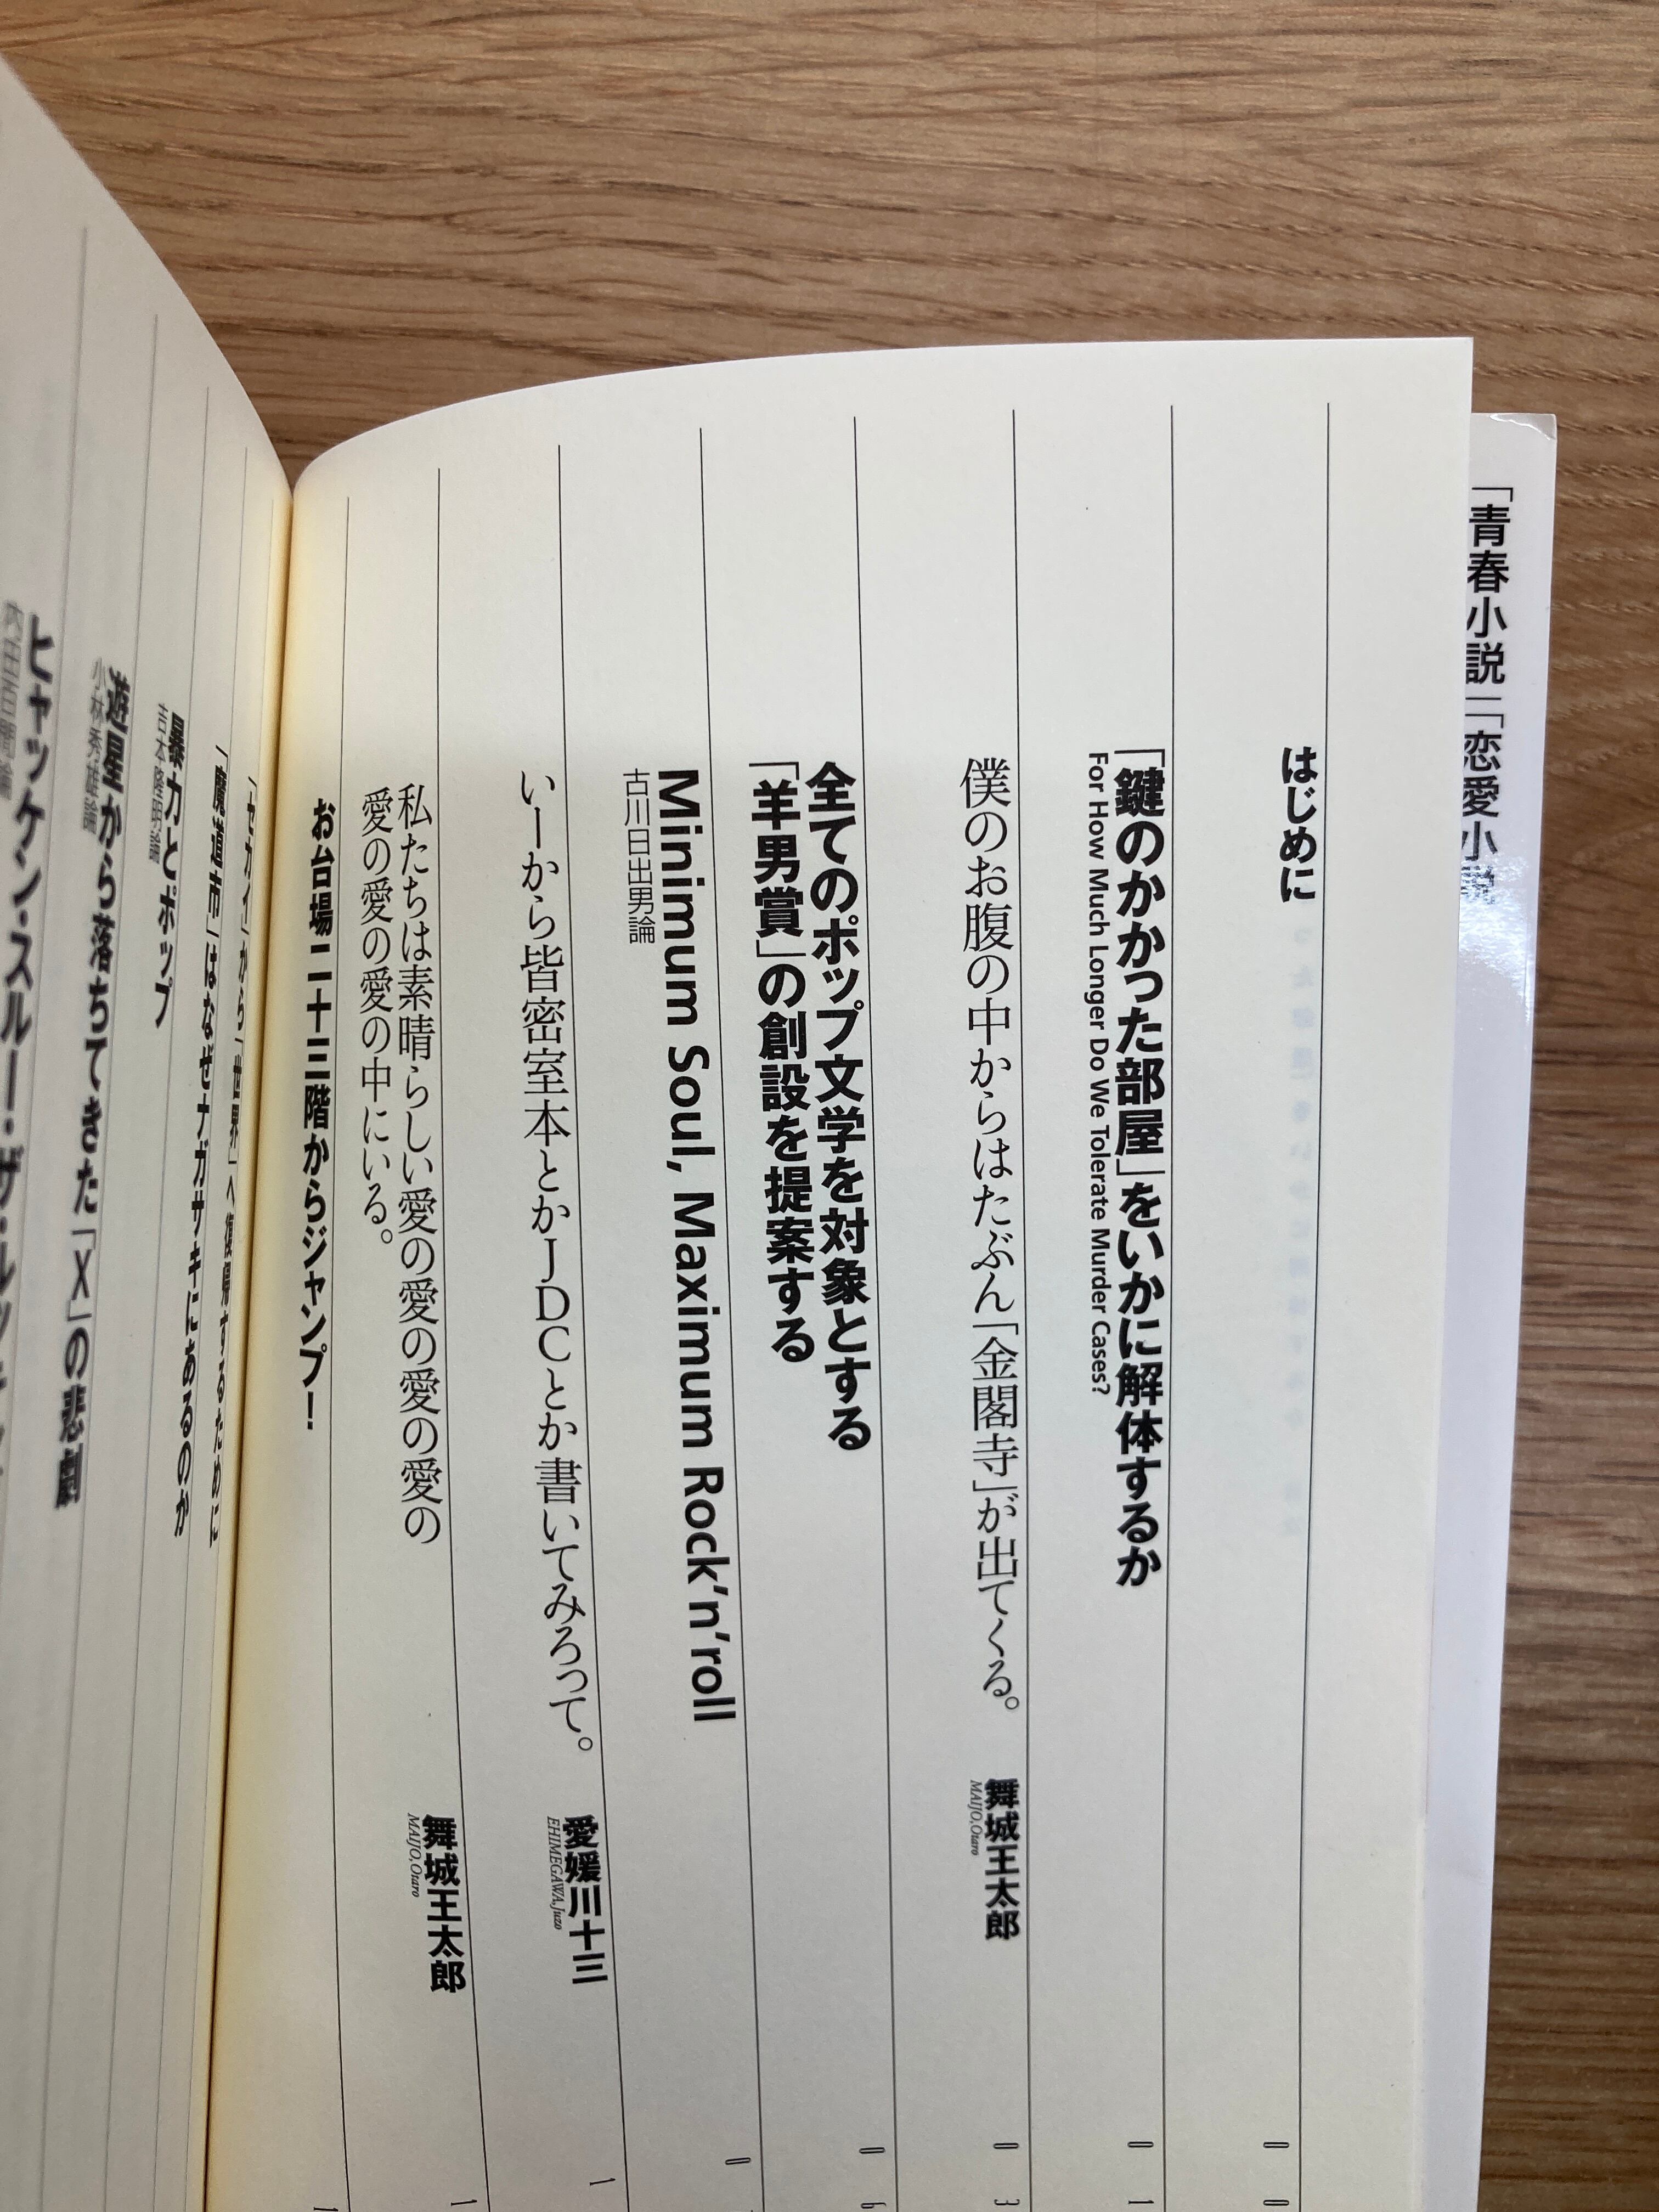 「青春小説」「恋愛小説
はじめに
「鍵のかかった部屋」をいかに解体するか
For How Much Longer Do We Tolerate Murder Cases?
僕のお腹の中からはたぶん「金閣寺」が出てくる。
舞城王太郎
MAIJO,Otaro
全てのポップ文学を対象とする
「羊男賞」の創設を提案する
Minimum Soul, Maximum Rock'n'roll
古川日出男論
いーから皆密室本とかJDCとか書いてみろって。
愛媛川十三
EHIMEGAWA,Juzo
私たちは素晴らしい愛の愛の愛の愛の
愛の愛の愛の中にいる。
舞城王太郎
MAIJO,Otaro
お台場二十三階からジャンプ！
「セカイ」から「世界」へ復帰するために
「魔道市」はなぜナガサキにあるのか
暴力とポップ
吉本隆明論
遊星から落ちてきた「X」の悲劇
小林秀雄論
ヒャッケン・スルー・ザ・ルッ
内田百閒論